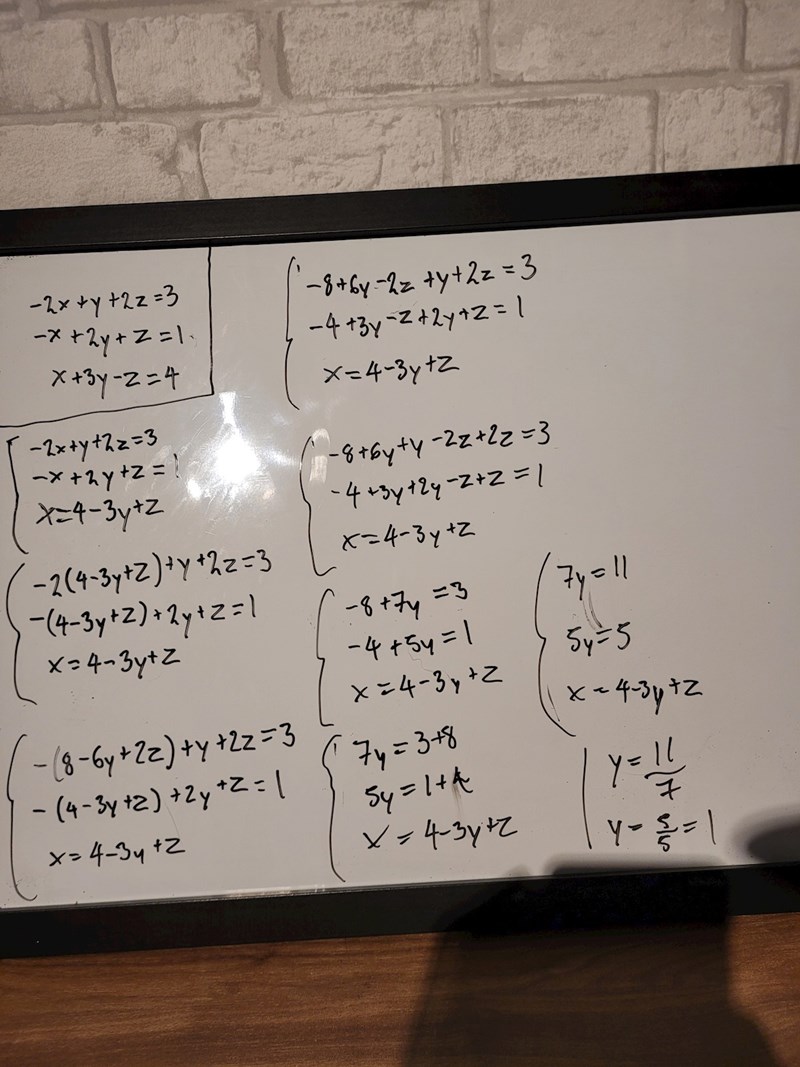 -2x+y+2z=3
-x+2y+z=1
x+3y-z=4
-2x+y+2z=3
-x+2y+z=1
x=4-3y+z
-2(4-3y+z)+y+2z=3
-(4-3y+z)+2y+z=1
x=4-3y+z
-(8-6y+2z)+y+2z=3
-(4-3y+z)+2y+z=1
x=4-3y+z
-8+6y-2z+y+2z=3
-4+3y-z+2y+z=1
x=4-3y+z
-8+6y+y-2z+2z=3
-4+3y+2y-z+z=1
x=4-3y+z
-8+7y=3
-4+5y=1
x=4-3y+z
7y=3+8
5y=1+4
x=4-3y+z
7y=11
5y=5
x=4-3y+z
y=11/7
y=5/5=1